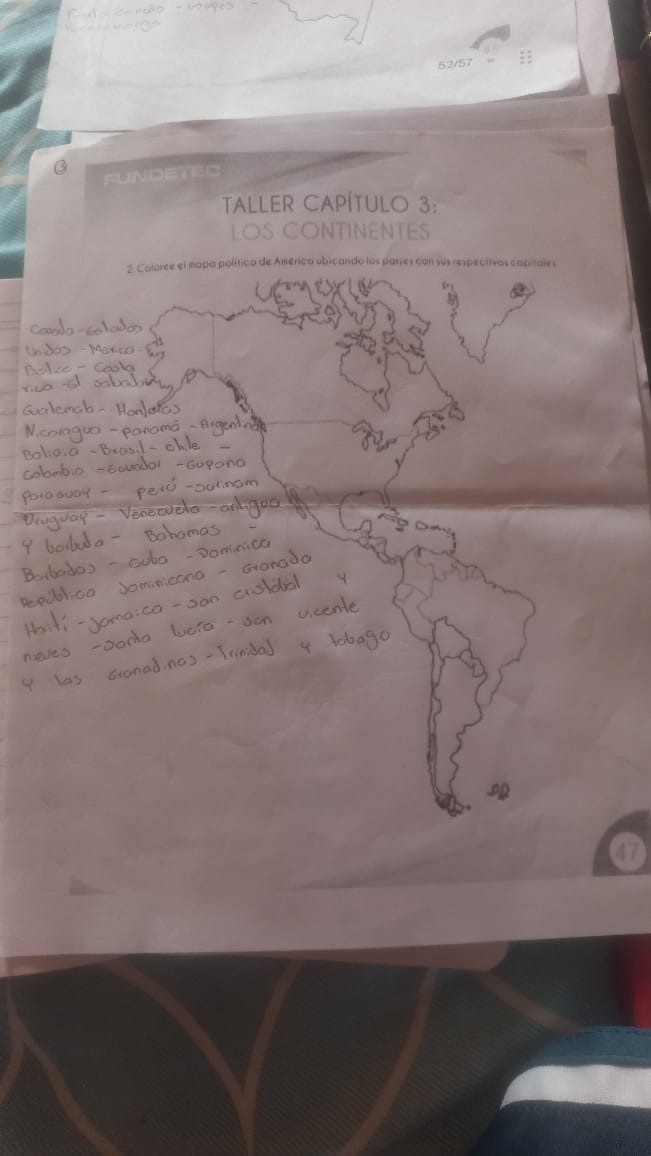 52/57
3
FUNDETEC
TALLER CAPÍTULO 3:
LOS CONTINENTES
2. Coloree el mapa político de América ubicando los países con sus respectivas capitales
Canada - Estados
Unidos - Mexico -
Belze - Costa
rica - el salbador
Guatemala - Honduras
Nicaragua - panamá - Argentina
Bolivia - Brasil - chile -
Colombia - Ecuador - Guyana
paraguay - perú - surinam
Uruguay - Venezuela - antigua
y barbuda - Bahamas -
Barbados - cuba - Dominica
República Dominicana - Granada
Haití - Jamaica - san cristóbal y
nieves - santa lucía - san vicente
y las Granadinas - Trinidad y tobago
47